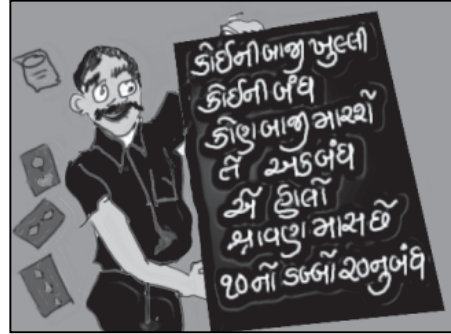 કોઈની બાજી ખુલ્લી
કોઈની બંધ
કોણ બાજી મારશે
તે અકબંધ
એ હાલો
શ્રાવણ માસ છે
૧૦નો ડબ્બો ૨૦નુબંધ